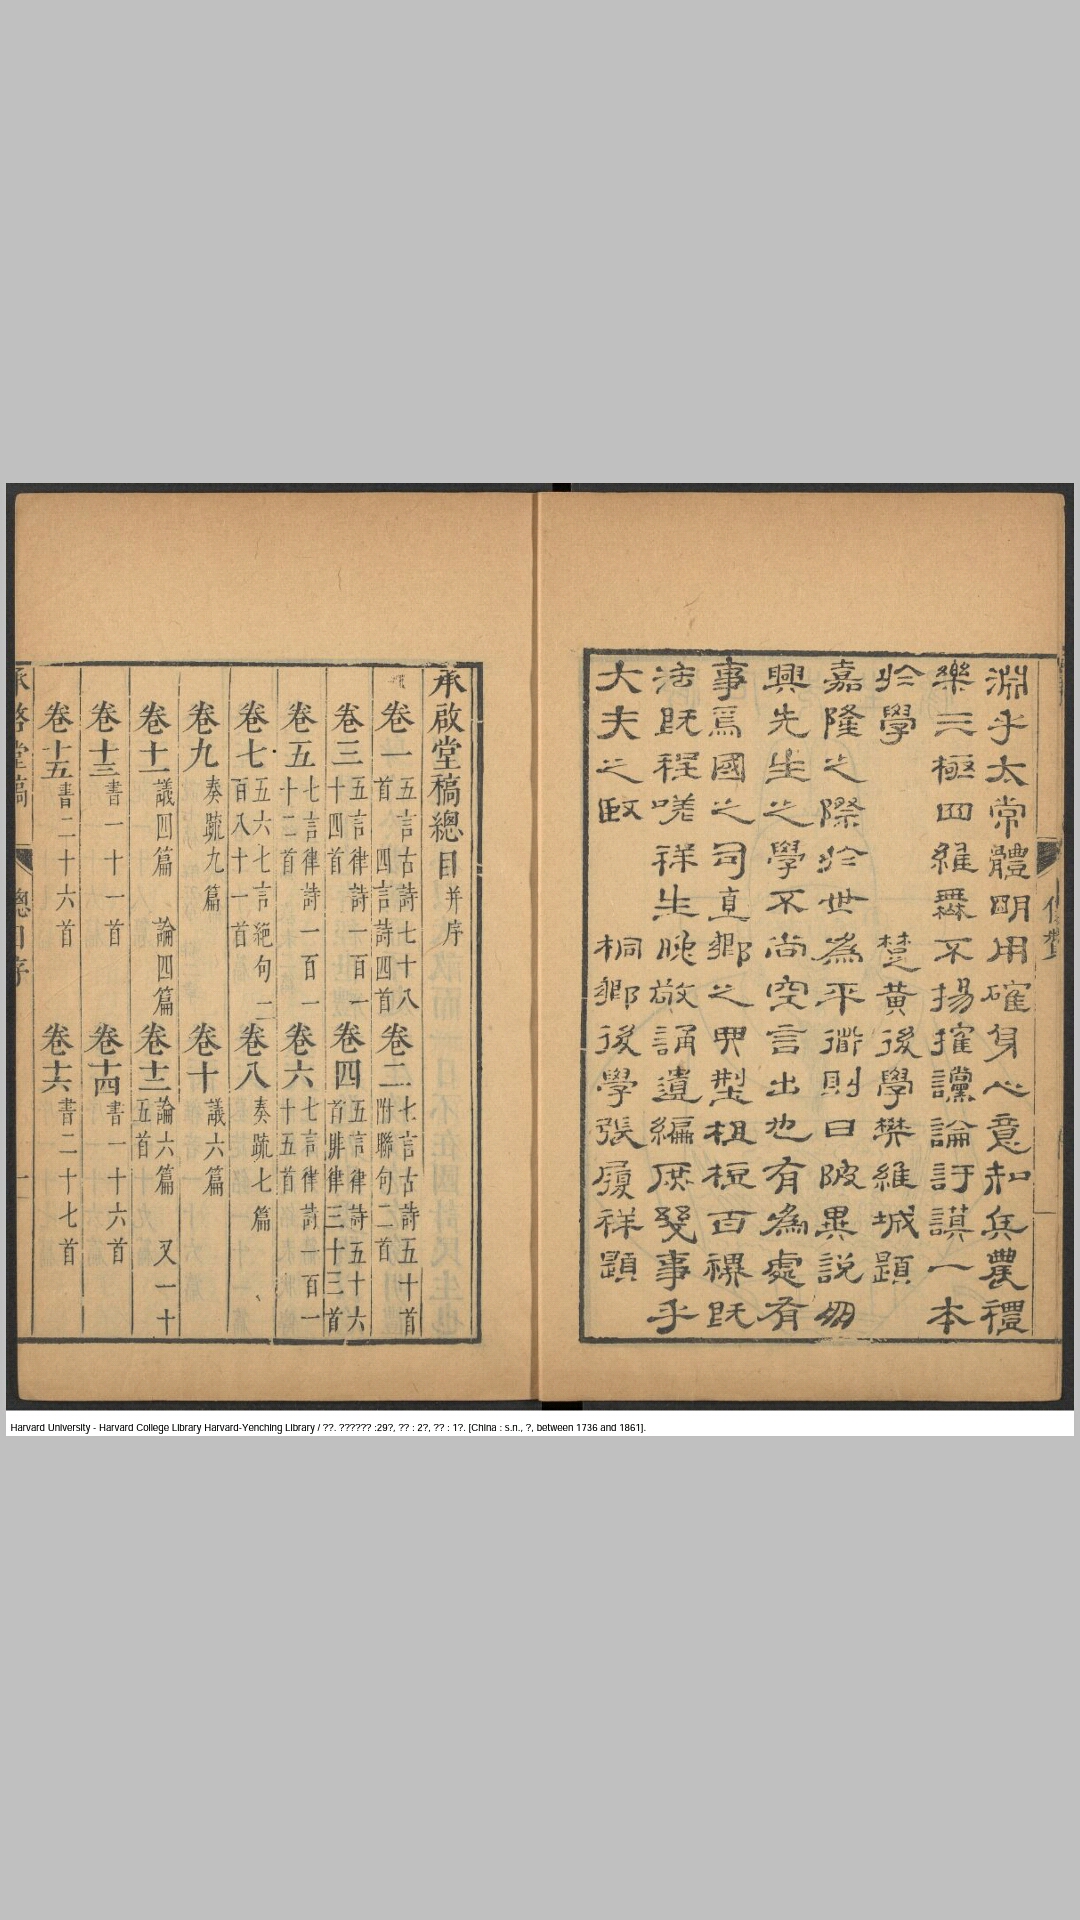 像贊
淵乎太常體明用確身心意知兵農禮
樂三極四維靡不揚搉讜論訏謨一本
於學
楚黄後學樊維城題
嘉隆之際於世為平衟則日陂異說朋
興先生之學不尚空言出也有為處有
事焉國之司直鄉之典型柤梪百禩旣
活旣程嗟祥生晚敬誦遺編庶幾事乎
大夫之
桐鄉後學張履祥題
承啟堂稿總目并序
卷一 五言古詩七十八首 四言詩四首 卷二 七言古詩五十首 附聯句二首
卷三 五言律詩一百一十四首 卷四 五言律詩五十六首排律三十三首
卷五 七言律詩一百一十二首 卷六 七言律詩一百一十五首
卷七 五六七言絕句二百八十一首 卷八 奏疏七篇
卷九 奏疏九篇 卷十 議六篇
卷十一 議四篇 論四篇 卷十二 論六篇 又一十五首
卷十三 書一十一首 卷十四 書一十六首
卷十五 書二十六首 卷十六 書二十七首
承啓堂稿 總目序 一
Harvard University - Harvard College Library Harvard-Yenching Library / ??. ?????? :29?, ?? : 2?, ?? : 1?. [China : s.n., ?, between 1736 and 1861].